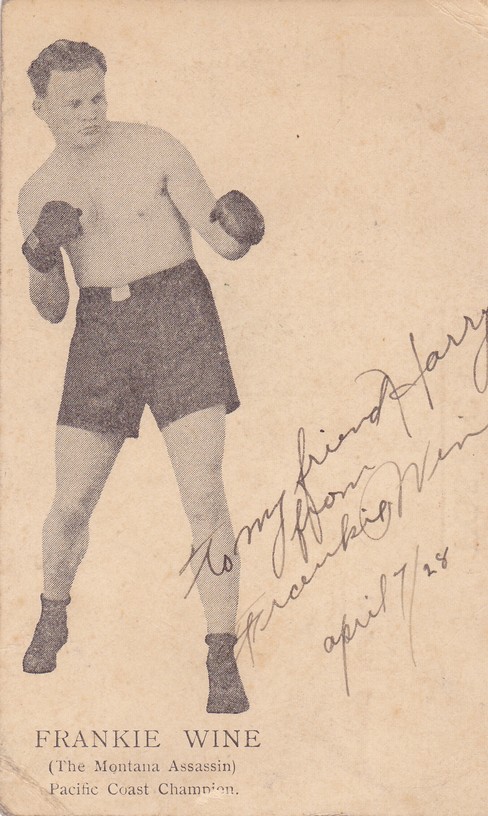 To my friend Harry
from
Frankie Wine
april 7/28
FRANKIE WINE
(The Montana Assassin)
Pacific Coast Champion.